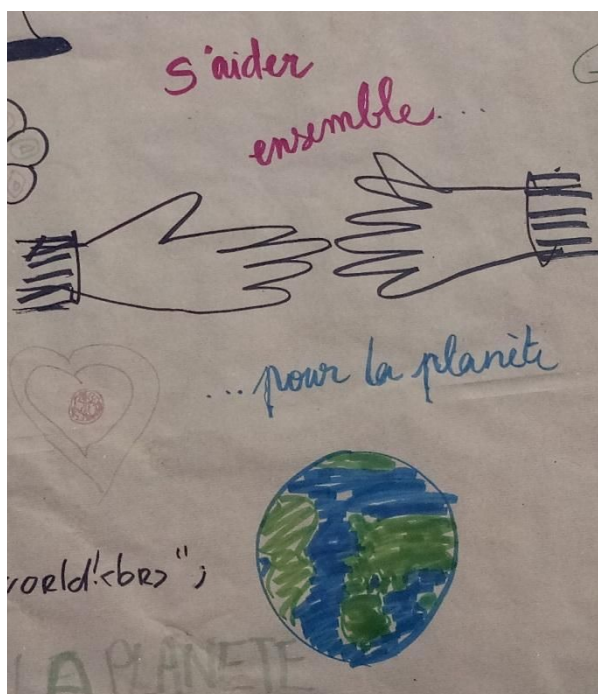 s'aider
ensemble...
...pour la planète
world!<br>";
LA PLANETE